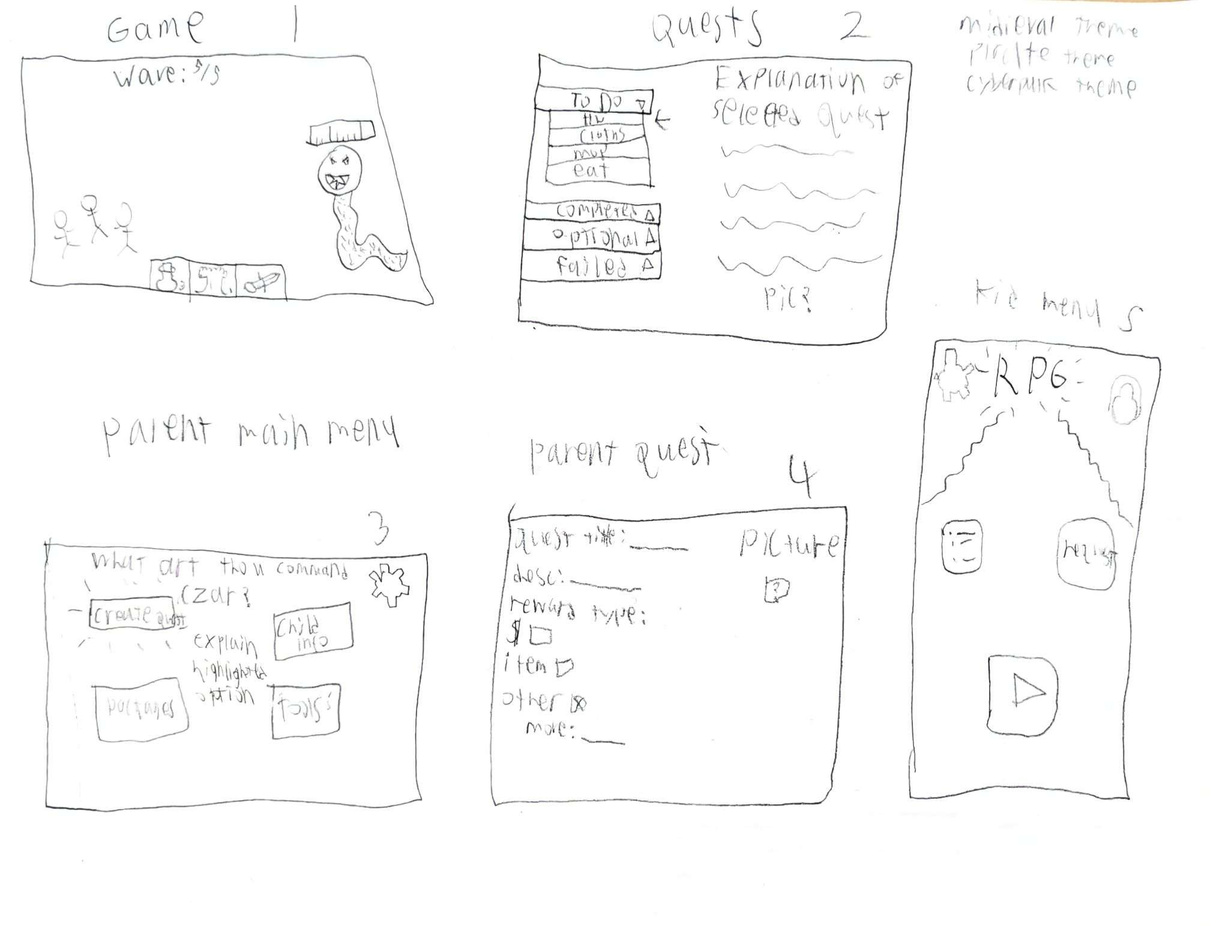 Game 1
Wave: 5/5
Quests 2
To Do
HW
cloths
eat
completed
optional
failed
Explanation of
selected quest
Pic?
midieval theme
pirate theme
cyberpunk theme
parent main menu
3
What art thou command
czar?
create quest
child
info
explain
highlighted
option
packages
tools
parent quest
4
quest title:
desc:
reward type:
$
item
other
more:
Picture
?
kid menu 5
RPG
request